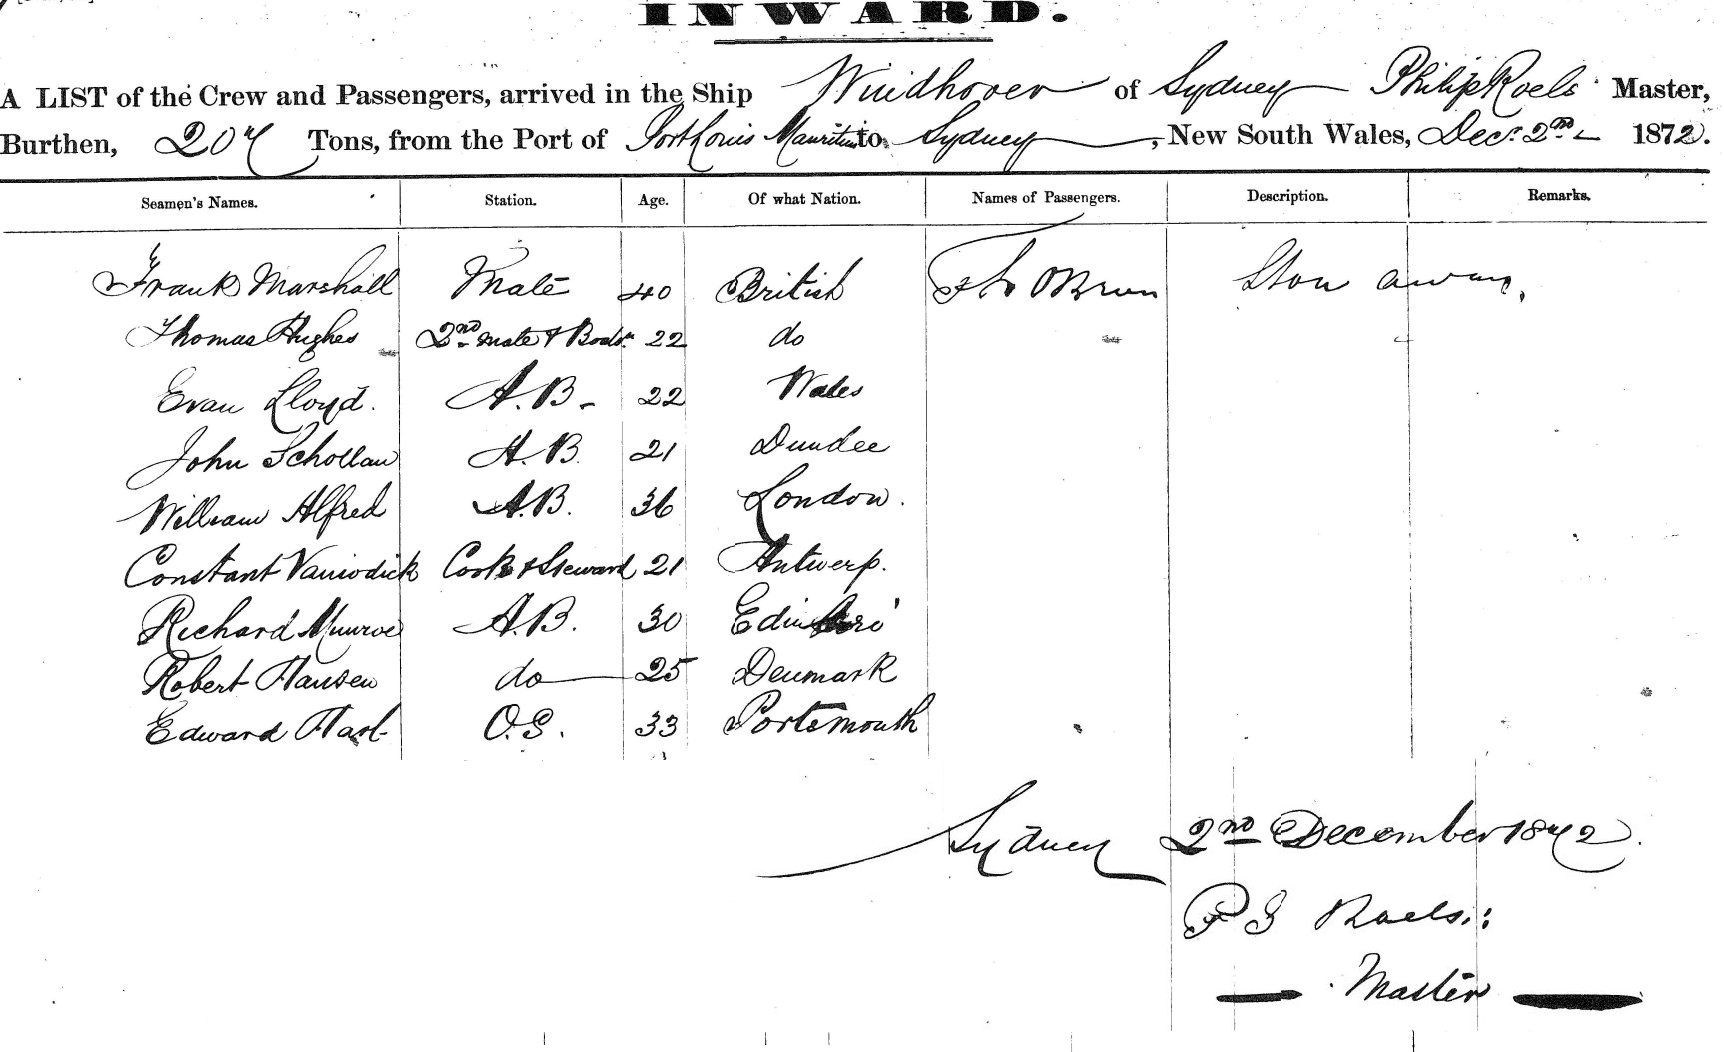 INWARD.
A LIST of the Crew and Passengers, arrived in the Ship Windhover of Sydney Philip Roels Master,
Burthen, 207 Tons, from the Port of Port Louis Mauritius to Sydney, New South Wales, Dec. 2nd 1872.
Seamen's Names. Station. Age. Of what Nation. Names of Passengers. Description. Remarks.
Frank Marshall Mate 40 British O'Brien Stow away.
Thomas Hughes 2nd Mate & Boats. 22 do
Evan Lloyd. A.B. 22 Wales
John Schollaw A.B. 21 Dundee
William Alfred A.B. 36 London.
Constant Cook & Steward 21 Antwerp.
Richard Munroe A.B. 30
Robert Hansen do 25 Denmark
Edward Hart O.S. 33 Portsmouth
Sydney 2nd December 1872.
P S Roels
Master